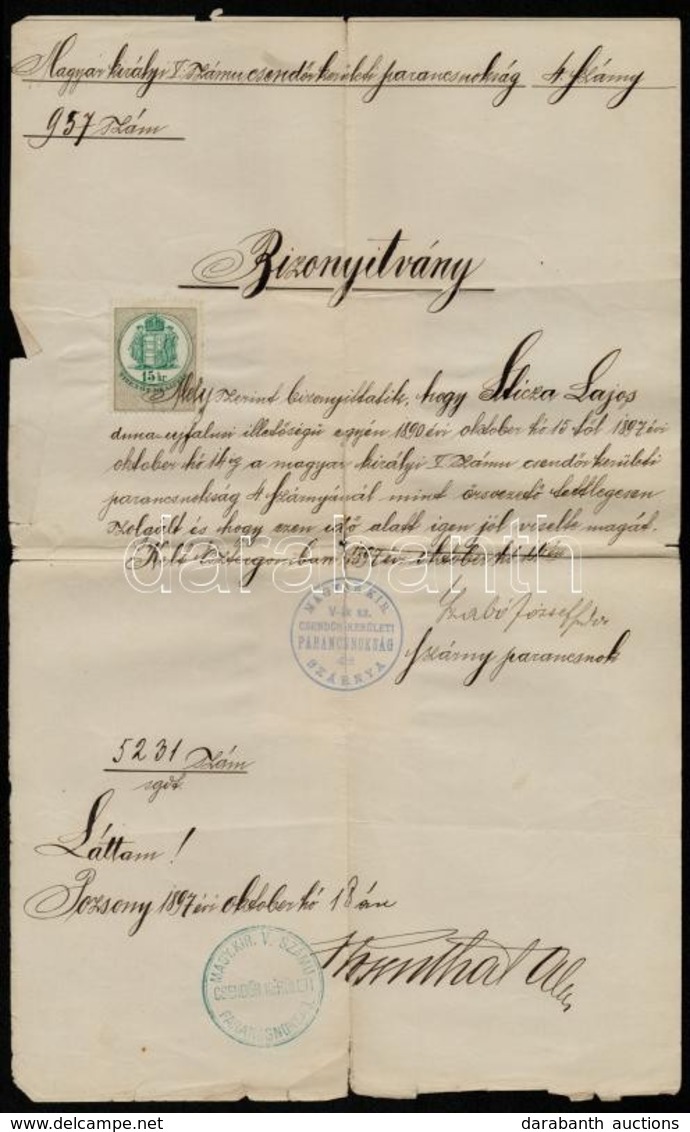 Magyar királyi V. számu csendőrkerületi parancsnokság 4. szárny
957 szám
Bizonyitvány
15 kr
Mely szerint bizonyittatik, hogy Sticza Lajos
duna-ujfalusi illetőségü egyén 1890 évi október hó 15 től 1897 évi
október hó 14 ig a magyar királyi V. számu csendőrkerületi
parancsnokság 4 szárnyánál mint őrsvezető tettlegesen
szolgált és hogy ezen idő alatt igen jól viselte magát.
Kelt Esztergomban 1897 év október hó
darabanth
MAGY. KIR.
V-IK SZ.
CSENDŐR-KERÜLETI
PARANCSNOKSÁG
SZÁRNYA
Szabó József
szárny parancsnok
5231 szám
sgdt.
Láttam!
Pozsony 1897 évi október hó 18 án
MAGY. KIR. V. SZÁMU
CSENDŐR KERÜLETI
PARANCSNOKSÁG
www.delcampe.net
darabanth auctions